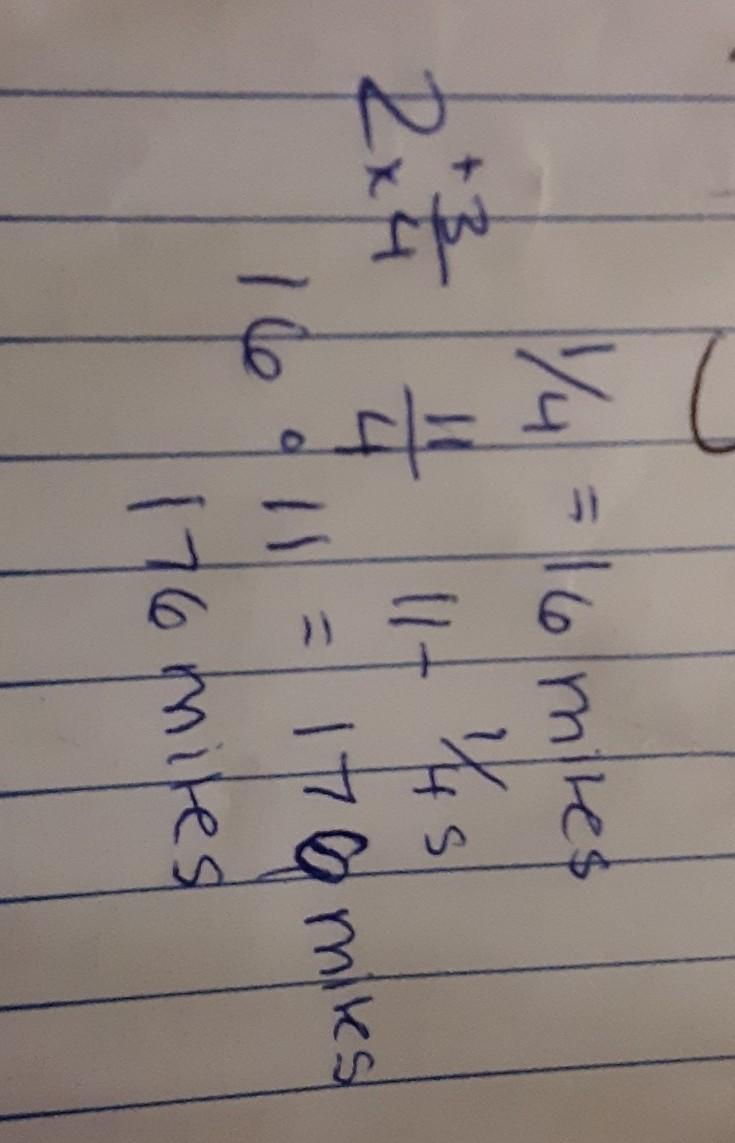 1/4 = 16 miles
2 + 3/4 x 11/4 11 - 1/4 s
16 • 11 = 176 miles
176 miles